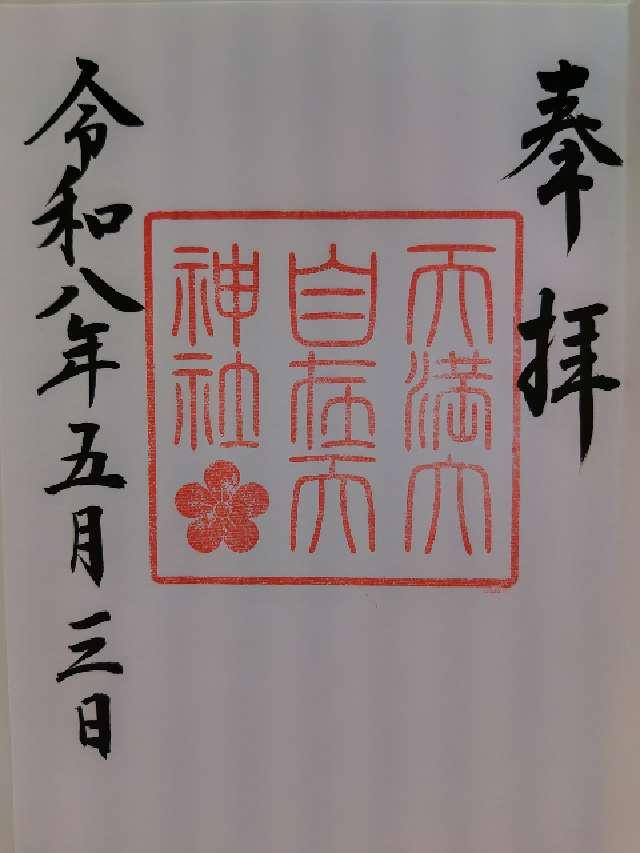 奉拝
天満大
自在天
神社
令和八年五月三日